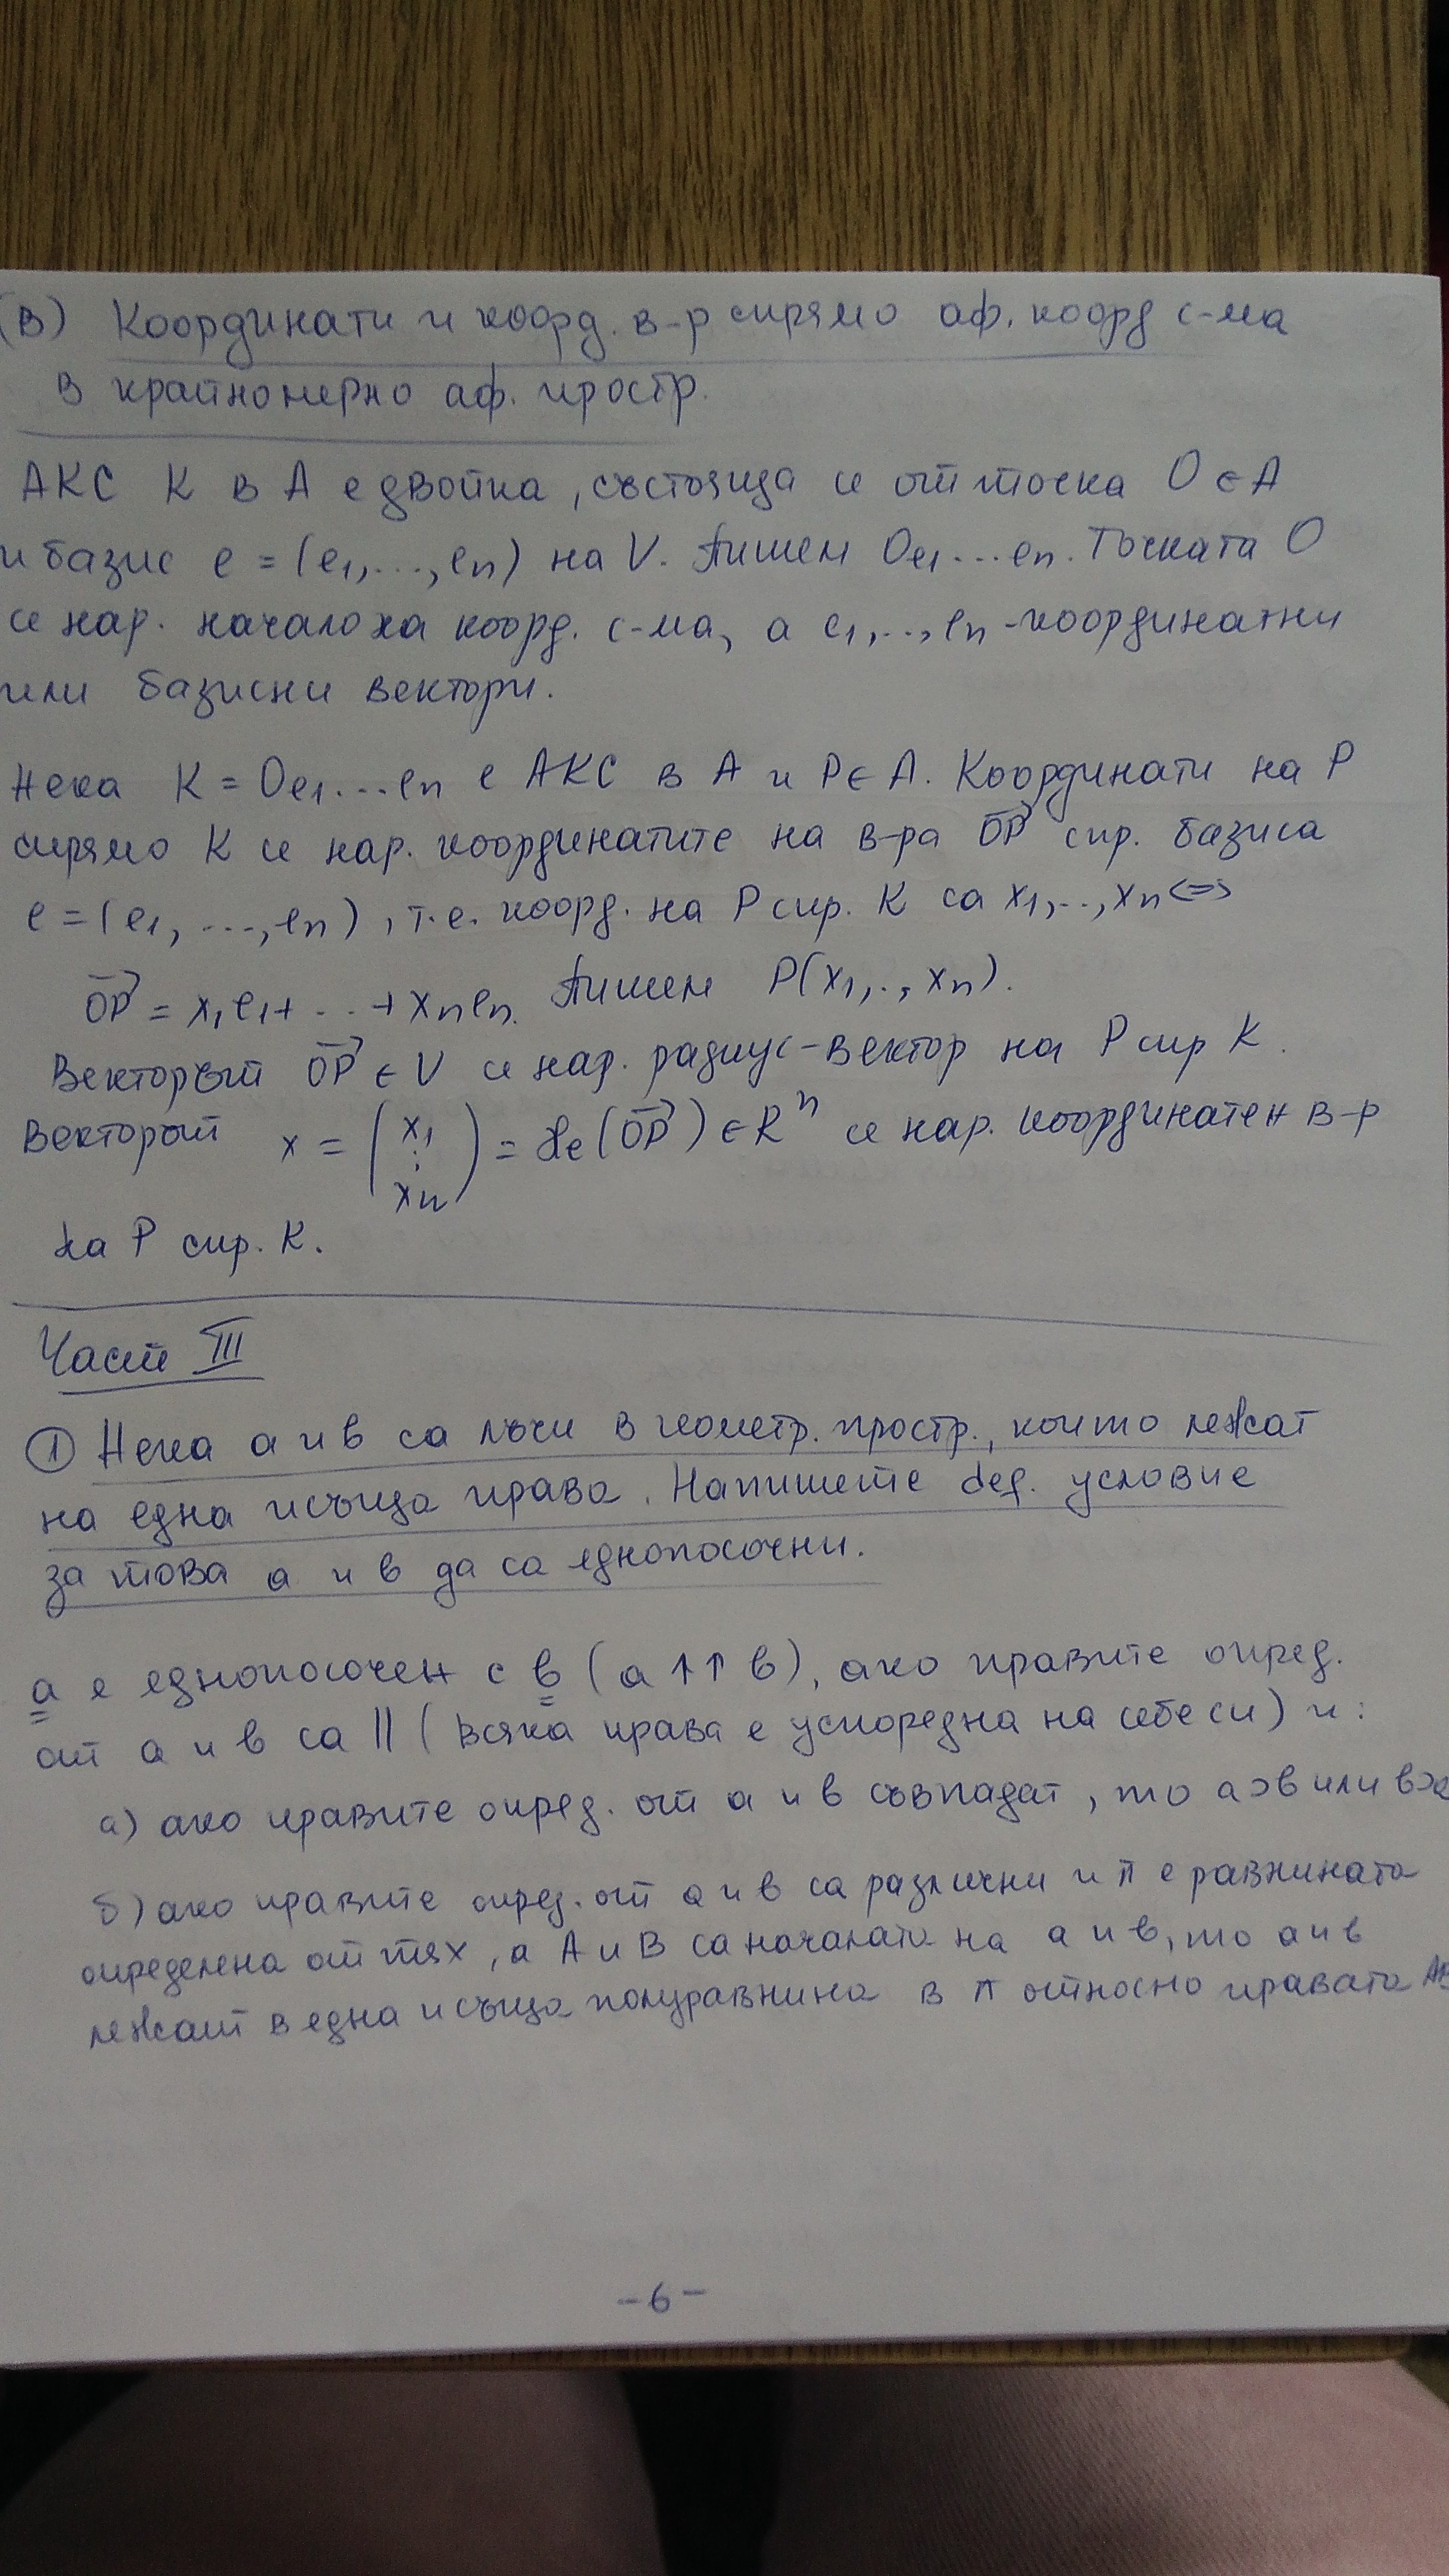 (в) Координати и коорд. в-р спрямо аф. коорд с-ма
в крайномерно аф. простр.
АКС К в А е двойка, състояща се от точка О ∈ А
и базис e = (e₁,...,eₙ) на V. Пишем Oe₁...eₙ. Точката О
се нар. начало на коорд. с-ма, а e₁,..,eₙ - координатни
или базисни вектори.
Нека K = Oe₁...eₙ е АКС в А и P ∈ A. Координати на P
спрямо К се нар. координатите на в-ра O͞P⃗ спр. базиса
e = (e₁, ..., eₙ), т.е. коорд. на P спр. К са x₁,..,xₙ <=>
OP⃗ = x₁e₁+ ... + xₙeₙ. Пишем P(x₁,..,xₙ).
Векторът OP⃗ ∈ V се нар. радиус-вектор на P спр К.
Векторът x = (x₁ ⋮ xₙ) = ϰe(OP⃗) ∈ Rⁿ се нар. координатен в-р
на P спр. К.
Част III
① Нека a и b са лъчи в геометр. простр., които лежат
на една и съща права. Напишете деф. условие
за това a и b да са еднопосочни.
a е еднопосочен с b (a ↑↑ b), ако правите опред.
от a и b са || (всяка права е успоредна на себе си) и:
а) ако правите опред. от a и b съвпадат, то a⊃b или b⊃
б) ако правите опред. от a и b са различни и π е равнината
определена от тях, а A и B са началата на a и b, то a и b
лежат в една и съща полуравнина в π относно правата AB
-6-